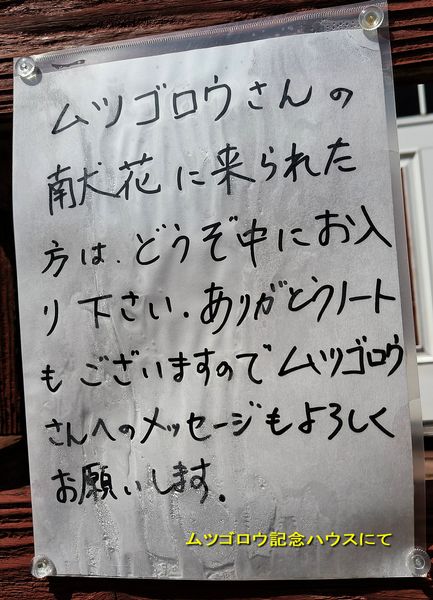 ムツゴロウさんの
献花に来られた
方は、どうぞ中にお入
り下さい。ありがとうノート
もございますのでムツゴロウ
さんへのメッセージもよろしく
お願いします。
ムツゴロウ記念ハウスにて